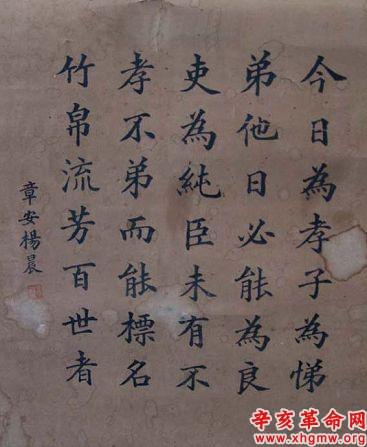 今日為孝子為悌
弟他日必能為良
吏為純臣未有不
孝不弟而能標名
竹帛流芳百世者
章安楊晨
辛亥革命网
www.xhgmw.org